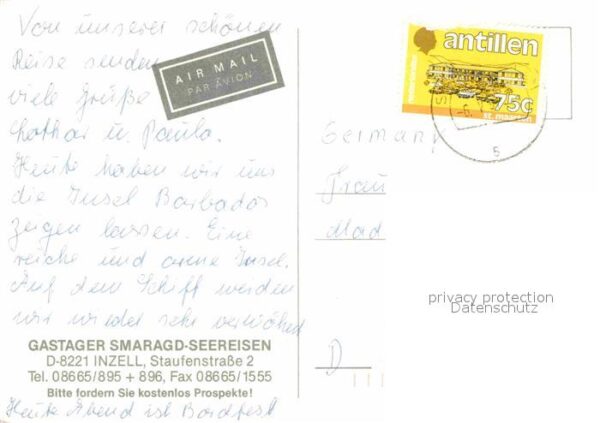 Von unserer schönen
Reise senden
viele Grüße
Lothar u. Paula.
Heute haben wir uns
die Insel Barbados
zeigen lassen. Eine
reiche und arme Insel.
Auf dem Schiff werden
wir wieder sehr verwöhnt
GASTAGER SMARAGD-SEEREISEN
D-8221 INZELL, Staufenstraße 2
Tel. 08665/895 + 896, Fax 08665/1555
Bitte fordern Sie kostenlos Prospekte!
Heute Abend ist Bordfest
AIR MAIL
PAR AVION
antillen
75c
st. maarten
5
Germany
Frau
Mad
D
privacy protection
Datenschutz